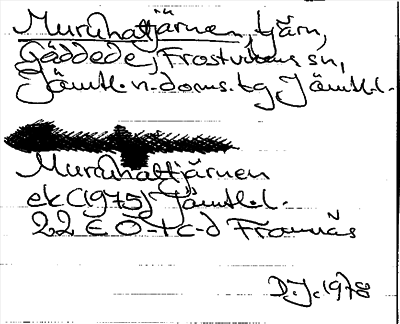 Murkhattjärnen, tjärn,
Gäddede, Frostvikens sn,
Jämtl. n. doms. tg Jämtl. l.
Murkhattjärnen
ek (1975) Jämtl. l.
22 E 0-1 c-d Framnäs
D.J. 1978